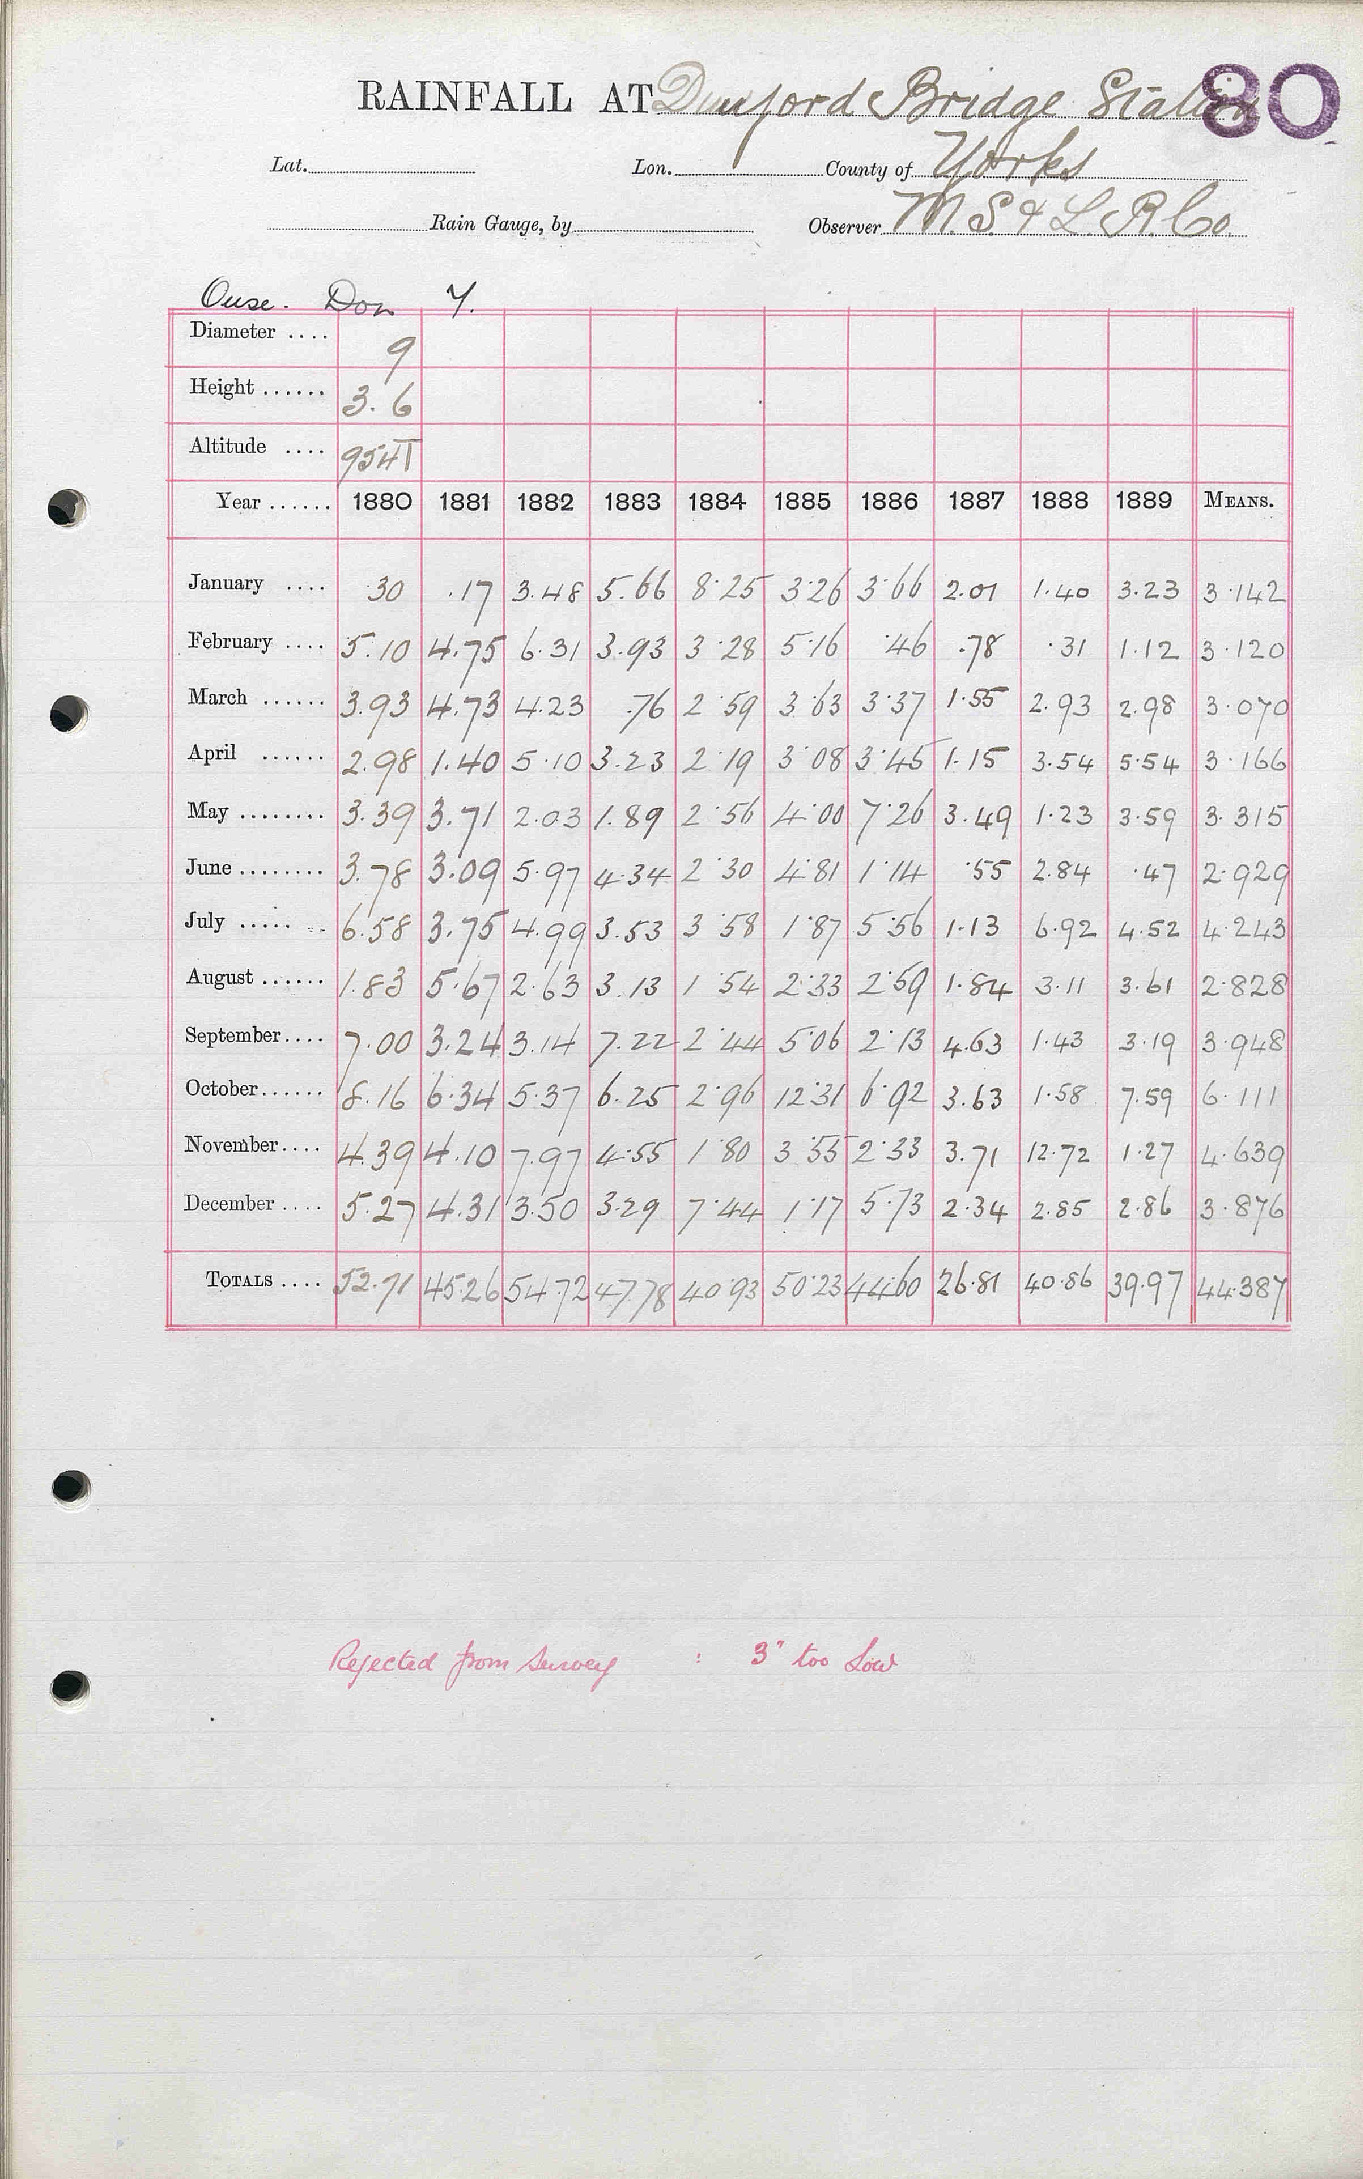 80
RAINFALL AT Dunford Bridge Station
Lat. Lon. County of Yorks
Rain Gauge, by Observer M. S. & L. R. Co.
Ouse. Don 7.
Diameter .... 9
Height ...... 3.6
Altitude .... 954T
Year ...... 1880 1881 1882 1883 1884 1885 1886 1887 1888 1889 MEANS.
January .... .30 .17 3.48 5.66 8.25 3.26 3.66 2.01 1.40 3.23 3.142
February .... 5.10 4.75 6.31 3.93 3.28 5.16 .46 .78 .31 1.12 3.120
March ...... 3.93 4.73 4.23 .76 2.59 3.63 3.37 1.55 2.93 2.98 3.070
April ...... 2.98 1.40 5.10 3.23 2.19 3.08 3.45 1.15 3.54 5.54 3.166
May ........ 3.39 3.71 2.03 1.89 2.56 4.00 7.26 3.49 1.23 3.59 3.315
June ........ 3.78 3.09 5.97 4.34 2.30 4.81 1.14 .55 2.84 .47 2.929
July ........ 6.58 3.75 4.99 3.53 3.58 1.87 5.56 1.13 6.92 4.52 4.243
August ...... 1.83 5.67 2.63 3.13 1.54 2.33 2.59 1.84 3.11 3.61 2.828
September.... 7.00 3.24 3.14 7.22 2.44 5.06 2.13 4.63 1.43 3.19 3.948
October...... 8.16 6.34 5.37 6.25 2.96 12.31 6.92 3.63 1.58 7.59 6.111
November.... 4.39 4.10 7.97 4.55 1.80 3.55 2.33 3.71 12.72 1.27 4.639
December .... 5.27 4.31 3.50 3.29 7.44 1.17 5.73 2.34 2.85 2.86 3.876
TOTALS .... 52.71 45.26 54.72 47.78 40.93 50.23 44.60 26.81 40.86 39.97 44.387
Rejected from Survey : 3" too Low